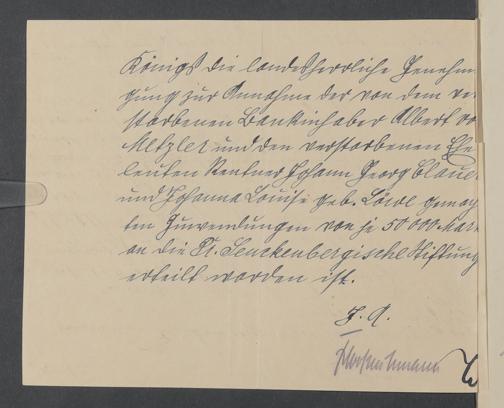 Königs die landesherrliche Genehm
gung zur Annahme der von dem ver
storbenen Bankinhaber Albert vo
Metzler und den verstorbenen Ehe
leuten Rentner Johann Georg Clauer
und Johanna Louise geb. Löwe gemach
ten Zuwendungen von je 50 000 Mark
an die Dr. Senckenbergische Stiftung
erteilt worden ist.
J. A.